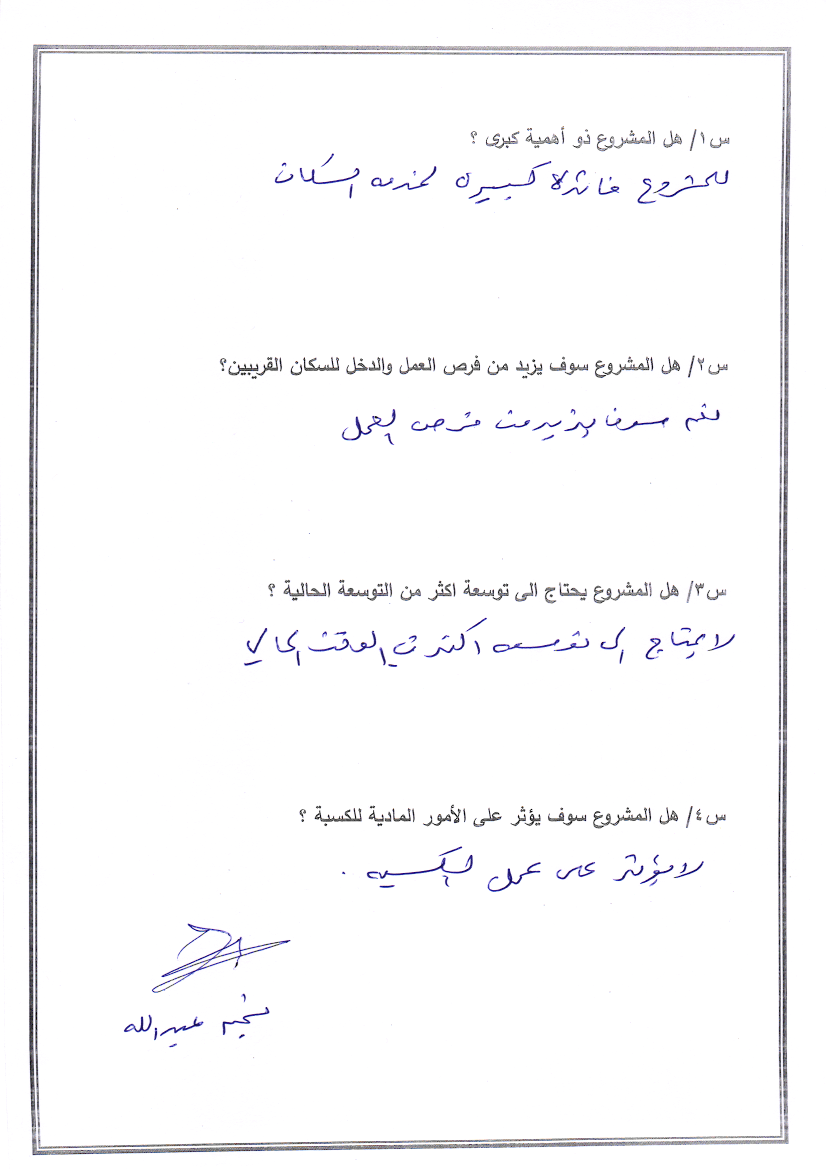 س١/ هل المشروع ذو أهمية كبرى ؟
للمشروع فائدة كبيره لخدمه السكان
س٢/ هل المشروع سوف يزيد من فرص العمل والدخل للسكان القريبين؟
نعم سوف يزيد من فرص العمل
س٣/ هل المشروع يحتاج الى توسعة اكثر من التوسعة الحالية ؟
لا يحتاج الى توسعه اكثر في الوقت الحالي
س٤/ هل المشروع سوف يؤثر على الأمور المادية للكسبة ؟
لا يؤثر على عمل الكسبه .
عبد الله